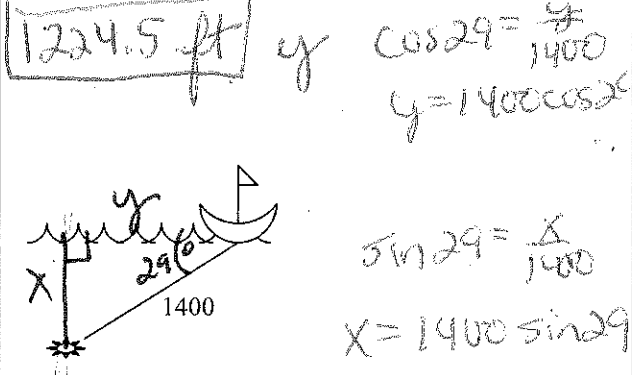 1224.5 ft y
cos29 = y/1400
y = 1400cos2
y
29°
x
1400
sin29 = x/1400
x = 1400 sin29